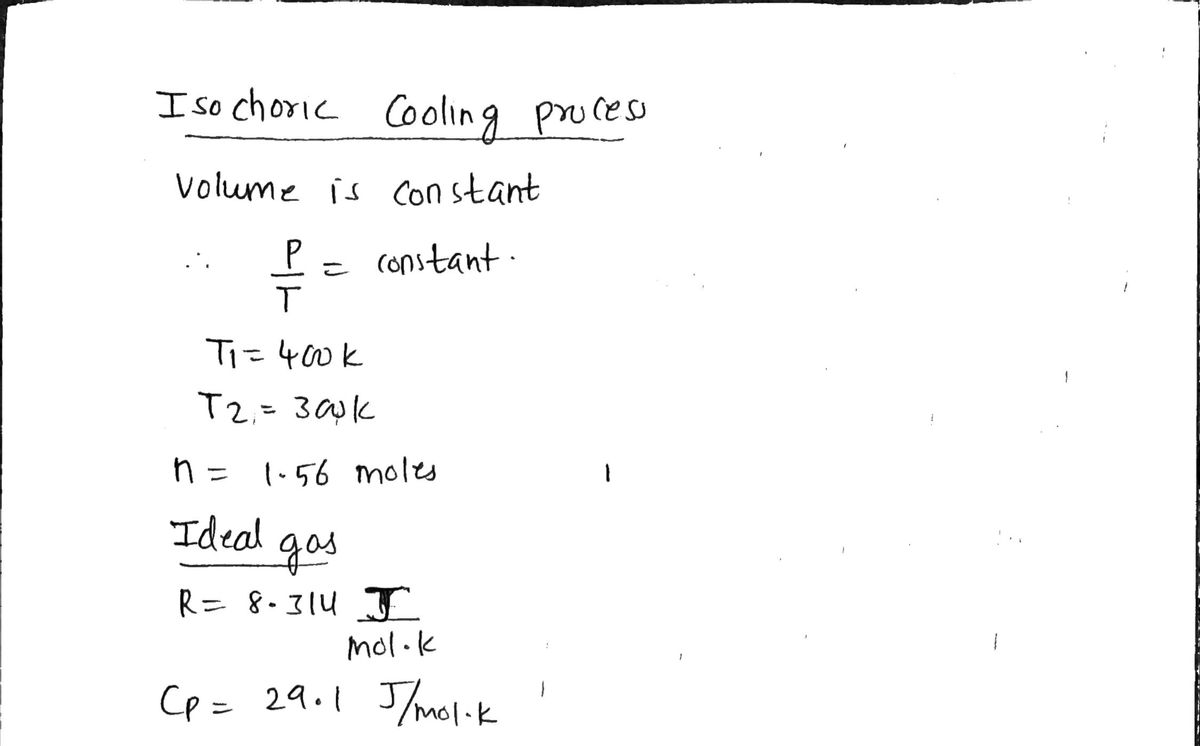 Isochoric Cooling process
Volume is constant
∴ P/T = constant.
T1 = 400 k
T2 = 300 k
n = 1.56 moles
Ideal gas
R = 8.314 J/mol.k
Cp = 29.1 J/mol.k